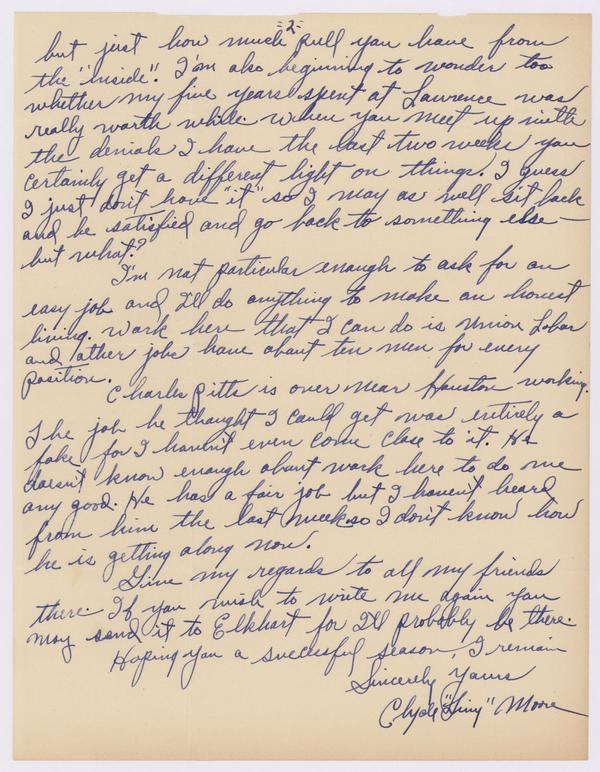 -2-
but just how much pull you have from
the "inside". I'm also beginning to wonder too
whether my five years spent at Lawrence was
really worth while. When you meet up with
the denials I have the last two weeks you
certainly get a different light on things. I guess
I just don't have "it" so I may as well sit back
and be satisfied and go back to something else —
but what?
I'm not particular enough to ask for an
easy job and I'll do anything to make an honest
living. Work here that I can do is Union Labor
and other jobs have about ten men for every
position.
Charles Pitts is over near Houston working.
The job he thought I could get was entirely a
fake for I havn't even come close to it. He
doesn't know enough about work here to do me
any good. He has a fair job but I haven't heard
from him the last week so I don't know how
he is getting along now.
Give my regards to all my friends
there. If you wish to write me again you
may send it to Elkhart for I'll probably be there.
Hoping you a successful season, I remain
Sincerely Yours
Clyde "Tiny" Moore